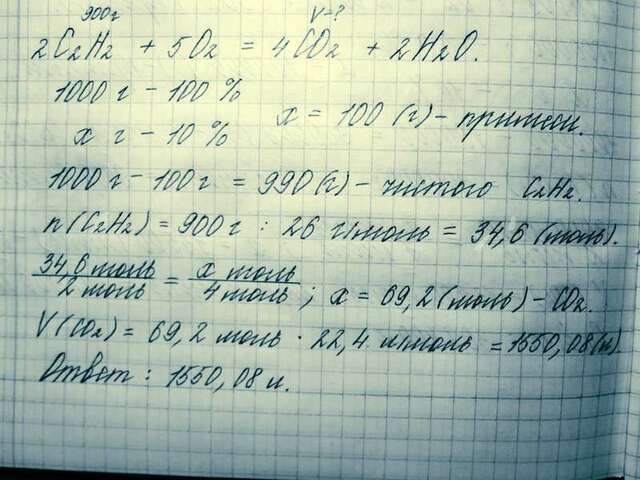 900г V-?
2C₂H₂ + 5O₂ = 4CO₂ + 2H₂O.
1000 г - 100 %
x г - 10 % x = 100 (г) - примеси.
1000 г - 100 г = 990 (г) - чистого C₂H₂.
n(C₂H₂) = 900 г : 26 г/моль = 34,6 (моль).
34,6 моль / 2 моль = x моль / 4 моль ; x = 69,2 (моль) - CO₂.
V(CO₂) = 69,2 моль · 22,4 л/моль = 1550,08 (л).
Ответ: 1550,08 л.